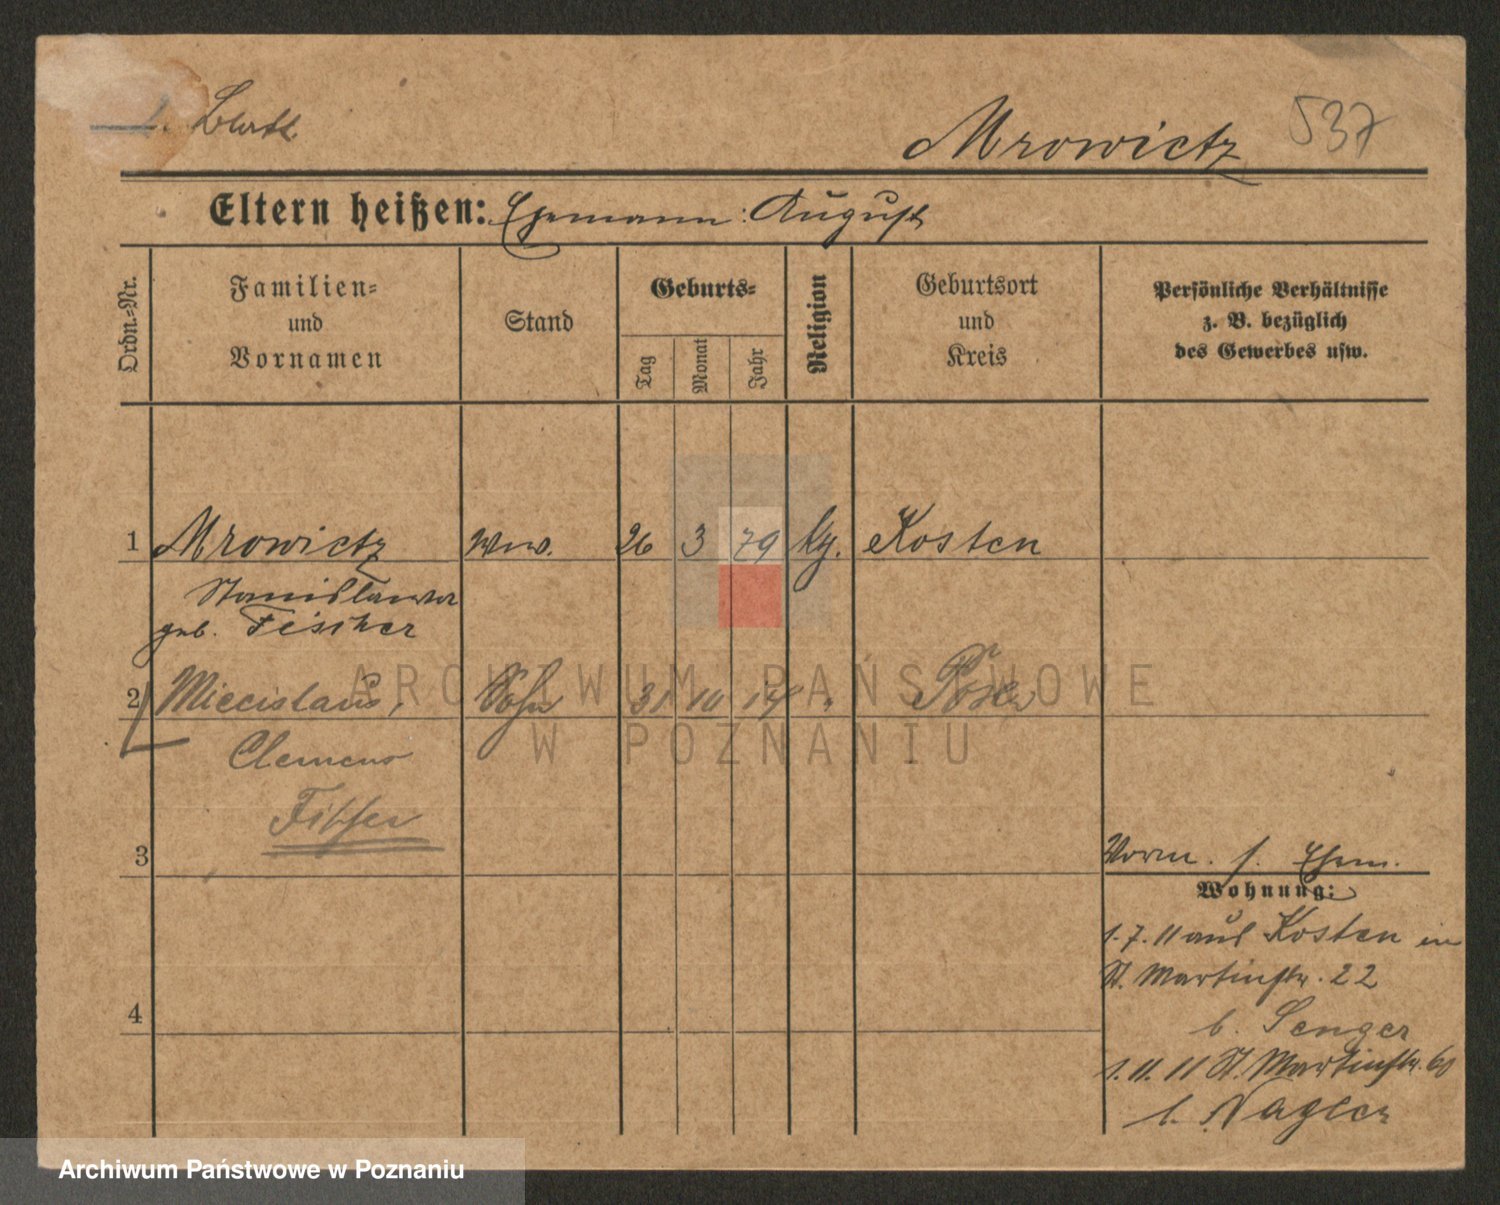 1. Blatt.
Mrowictz 537
Eltern heißen: Ehemann: August
Ordn.-Nr.
Familien-
und
Vornamen
Stand
Geburts-
Tag Monat Jahr
Religion
Geburtsort
und
Kreis
Persönliche Verhältnisse
z. B. bezüglich
des Gewerbes usw.
1 Mrowictz Wwe. 26 3 79 kg. Kosten
Stanislawa
geb. Fischer
2 Miecislaus, Sohn 31 10 14 " Posen
Clemens
Fischer
3
4
Vorm. s. Ehem.
Wohnung:
1.7.11 aus Kosten in
St. Martinstr. 22
b. Senger
1.11.11 St. Martinstr. 60
b. Nagler
ARCHIWUM PAŃSTWOWE
W POZNANIU
Archiwum Państwowe w Poznaniu